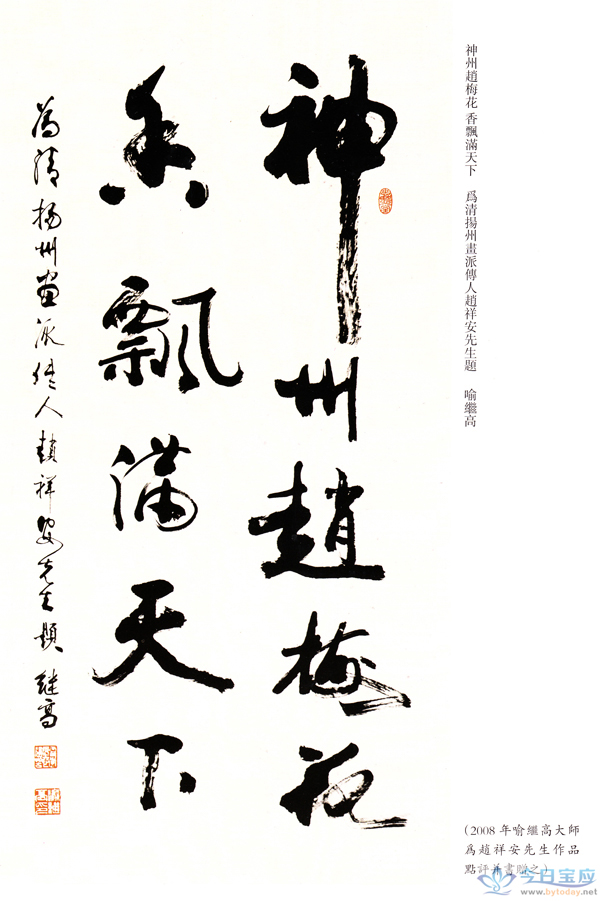 神州趙梅花
香飄滿天下
為清揚州畫派傳人趙祥安先生題 繼高
神州趙梅花 香飄滿天下 爲清揚州畫派傳人趙祥安先生題 喻繼高
(2008 年喻繼高大師
爲趙祥安先生作品
點評并書贈之)
今日宝应
www.bytoday.net